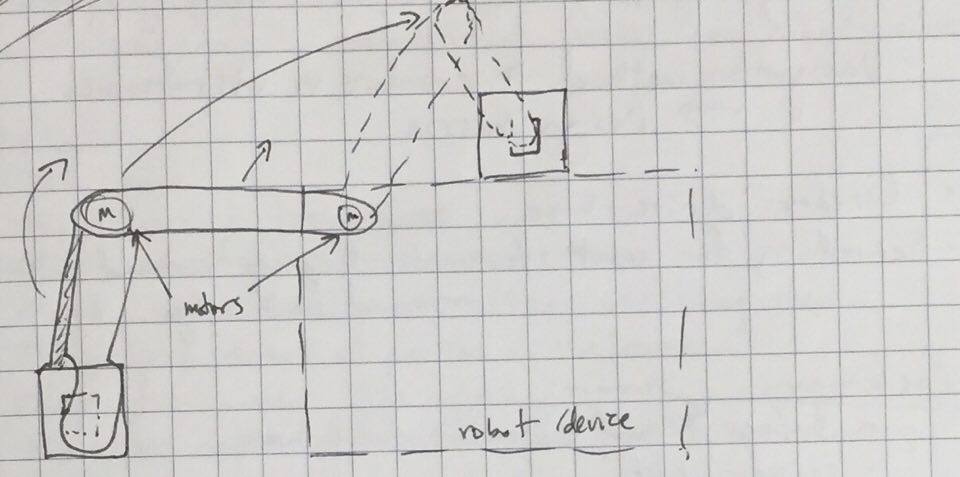 M
M
motors
robot/device